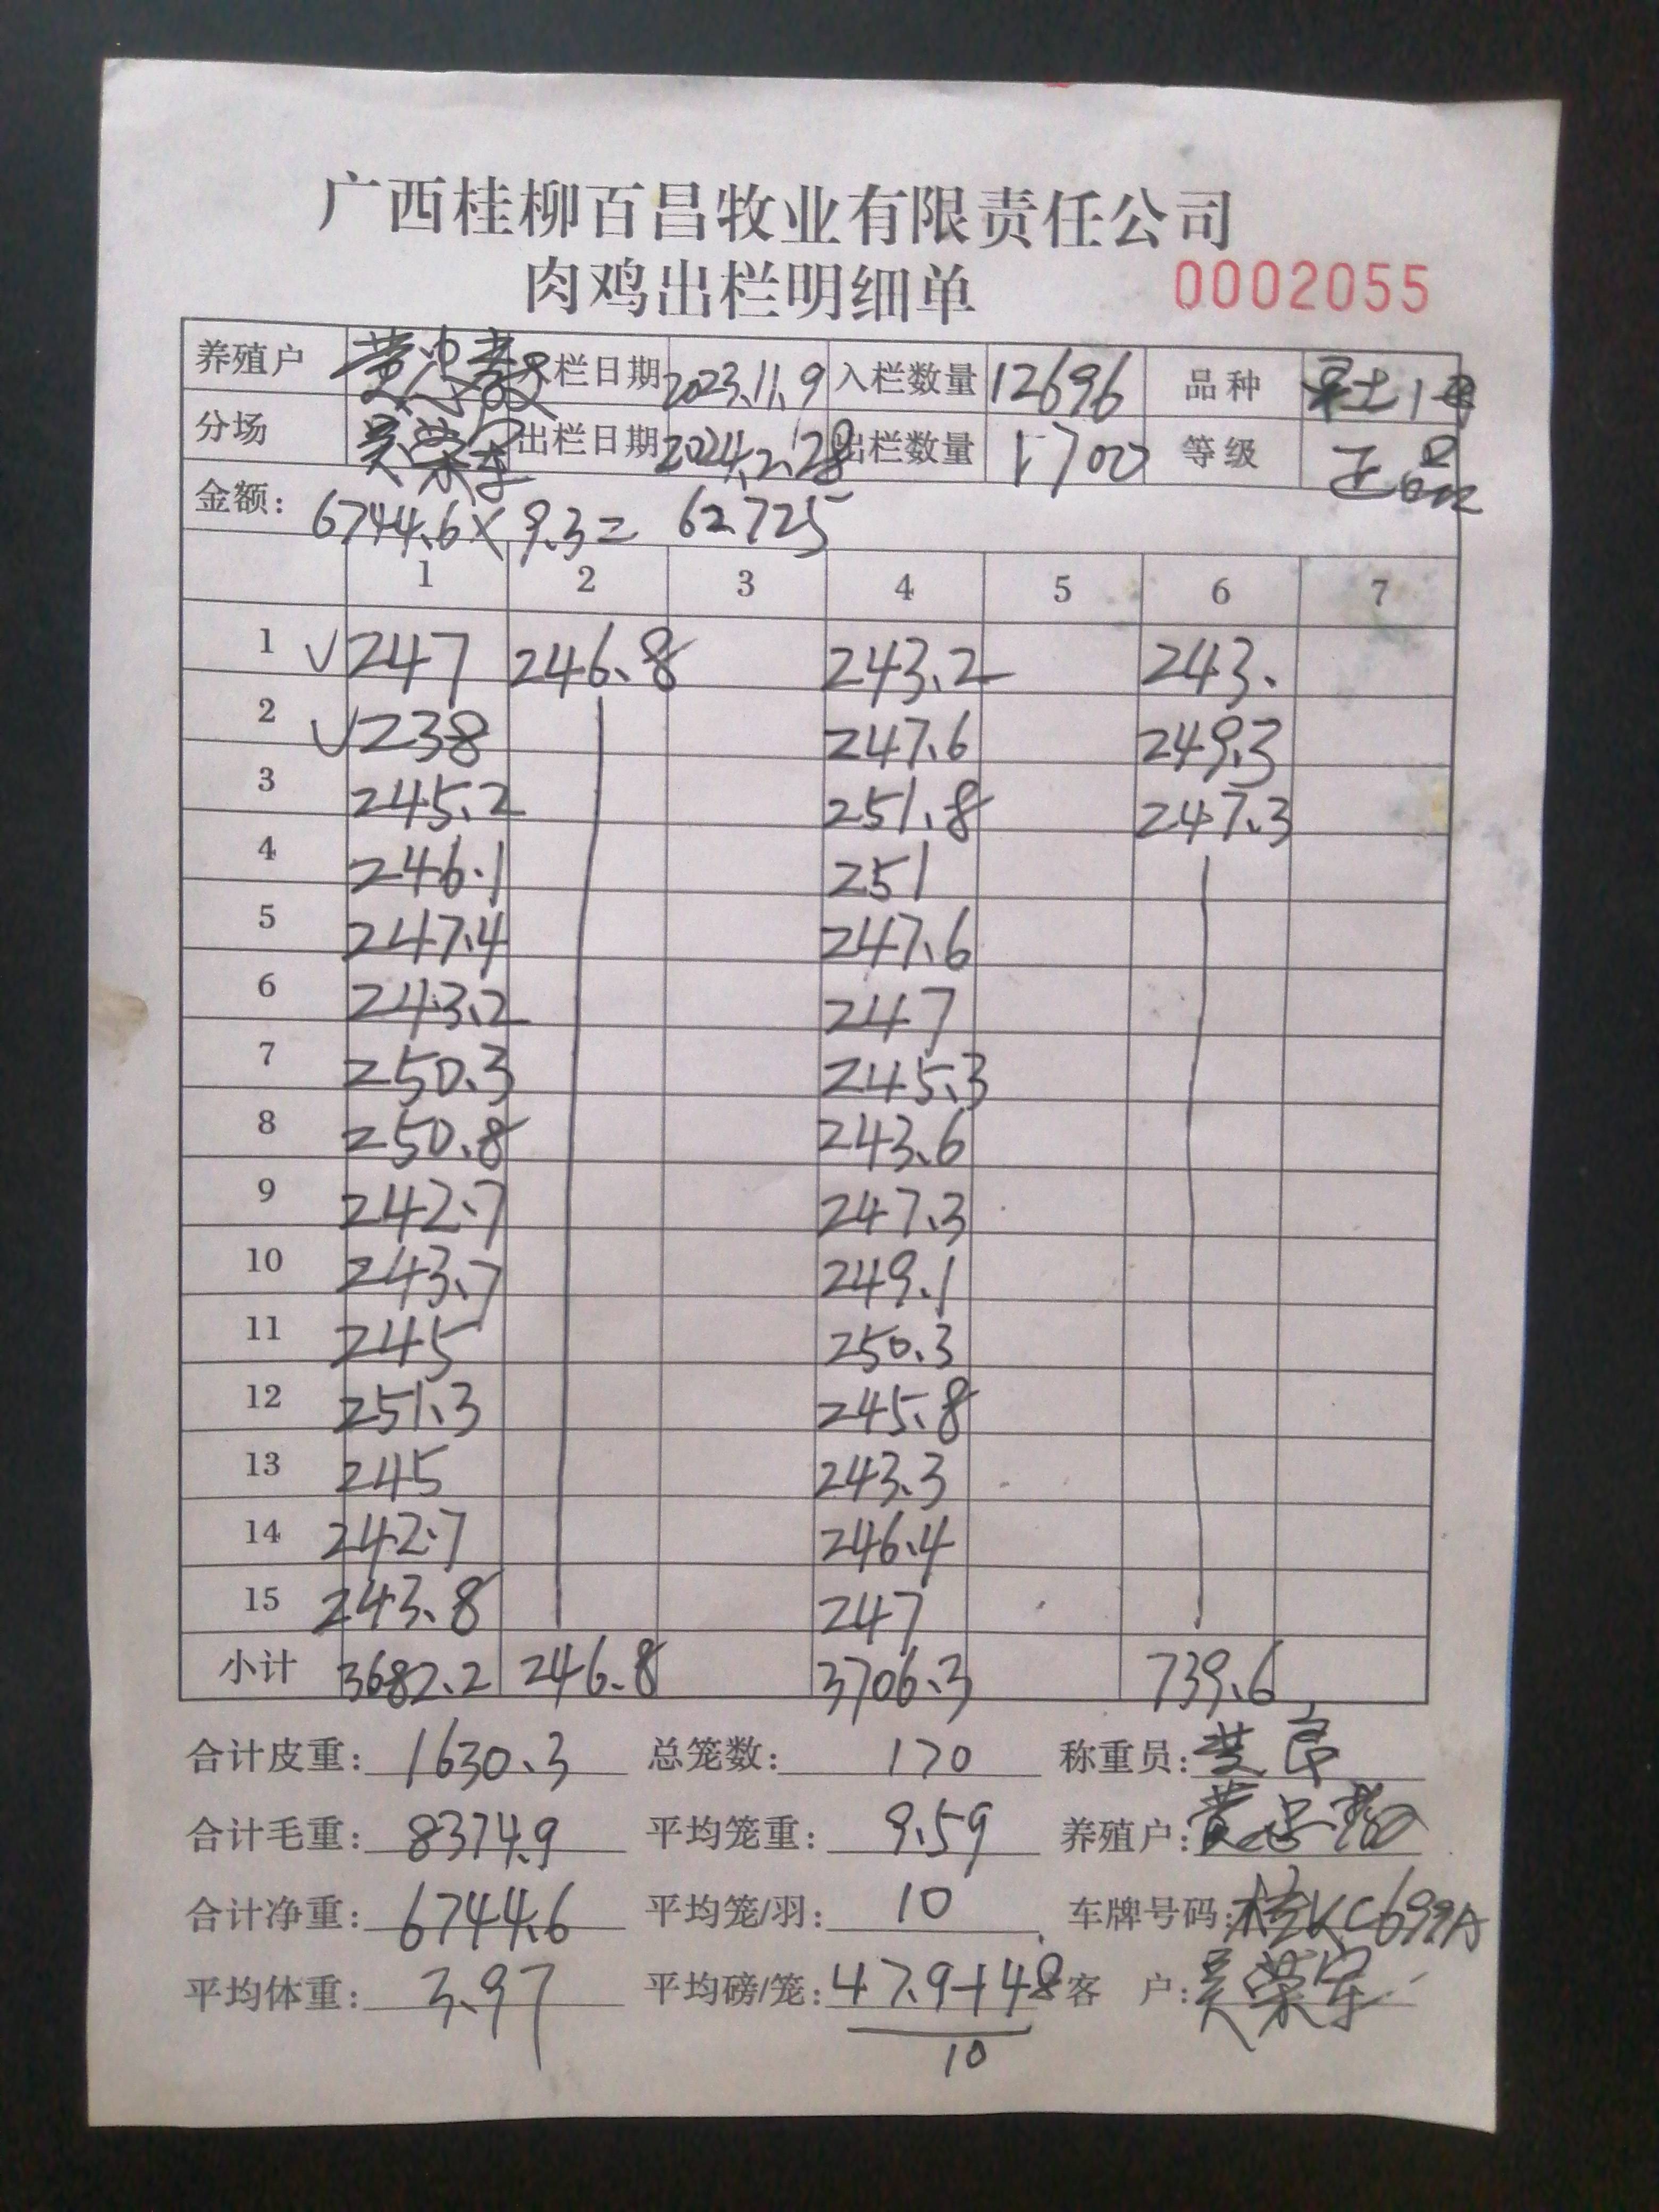 广西桂柳百昌牧业有限责任公司
肉鸡出栏明细单 0002055
养殖户 黄忠 栏日期 2023.11.9 入栏数量 12696 品种 土1号
分场 吴荣军 出栏日期 2024.2.28 出栏数量 1700 等级 正品
金额: 6744.6×9.3=62725
1 2 3 4 5 6 7
1 √247 246.8 243.2 243.
2 √238 247.6 249.3
3 245.2 251.8 247.3
4 246.1 251
5 247.4 247.6
6 243.2 247
7 250.3 245.3
8 250.8 243.6
9 242.7 247.3
10 243.7 249.1
11 245 250.3
12 251.3 245.8
13 245 243.3
14 242.7 246.4
15 243.8 247
小计 3682.2 246.8 3706.3 739.6
合计皮重: 1630.3 总笼数: 170 称重员:
合计毛重: 8374.9 平均笼重: 9.59 养殖户: 黄忠
合计净重: 6744.6 平均笼/羽: 10 车牌号码: 桂KC699A
平均体重: 3.97 平均磅/笼: 47.9+48 客 户: 吴荣军
10